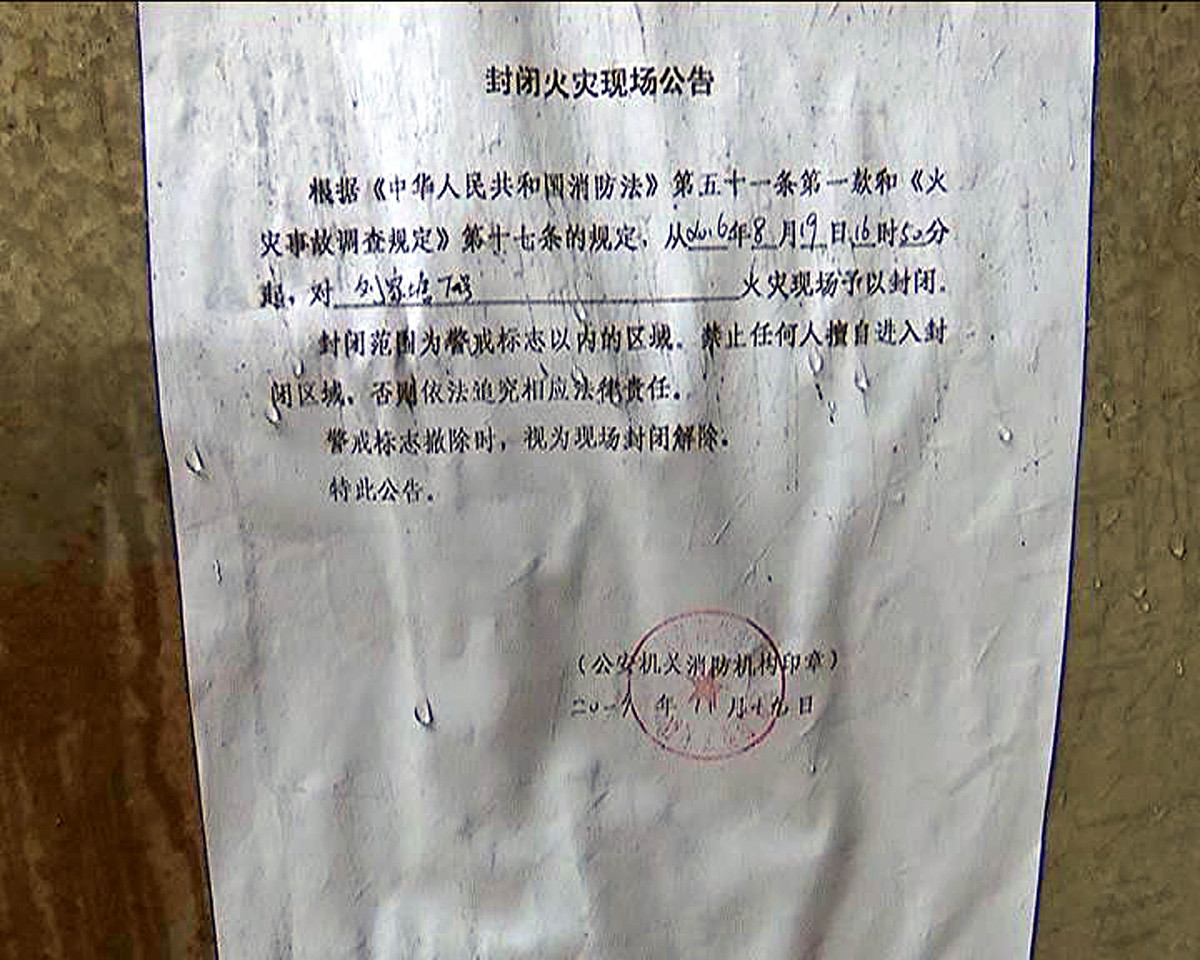 封闭火灾现场公告
根据《中华人民共和国消防法》第五十一条第一款和《火
灾事故调查规定》第十七条的规定，从2016年8月19日16时50分
起，对 刘家塘7号 火灾现场予以封闭。
封闭范围为警戒标志以内的区域。禁止任何人擅自进入封
闭区域，否则依法追究相应法律责任。
警戒标志撤除时，视为现场封闭解除。
特此公告。
（公安机关消防机构印章）
年 月十九日